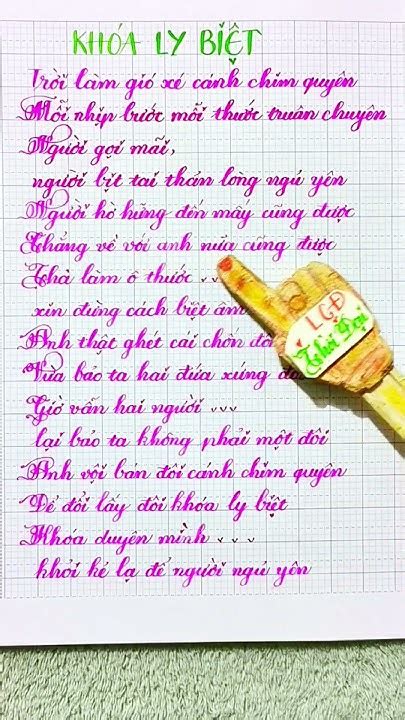 KHÓA LY BIỆT
Trời làm gió xé cánh chim quyên
Mỗi nhịp bước mỗi thước truân chuyên
Người gọi mãi,
người bịt tai thản lòng ngủ yên
Người hờ hững đến mấy cũng được
Chẳng về với anh nữa cũng được
Thà làm ô thước ...
xin đừng cách biệt âm
Anh thật ghét cái chốn
Vừa bảo ta hai đứa xứng
Giờ vẫn hai người ...
lại bảo ta không phải một đôi
Anh vội bán đôi cánh chim quyên
Để đổi lấy đôi khóa ly biệt
Khóa duyên mình ...
khỏi kẻ lạ để người ngủ yên
LGĐ
Thời Đại